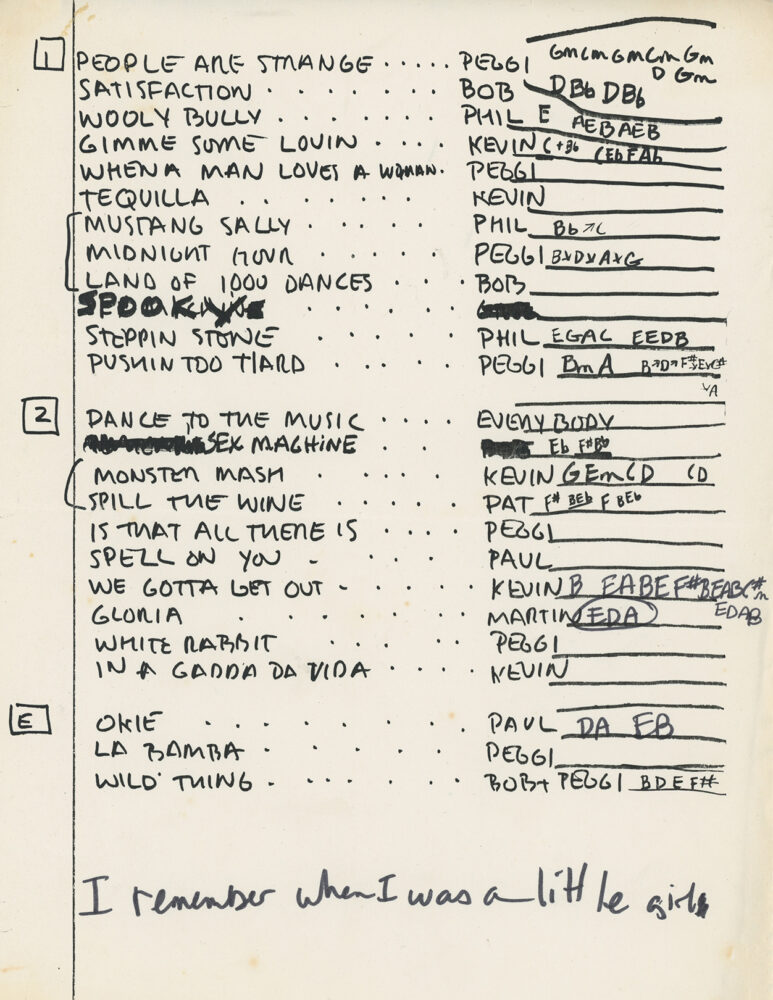 1 PEOPLE ARE STRANGE ..... PEGGI GmCmGmCmGm
D Gm
SATISFACTION ....... BOB DBb DBb
WOOLY BULLY ...... PHIL E AEBAEB
GIMME SOME LOVIN .... KEVIN C+Bb CEbFAb
WHEN A MAN LOVES A WOMAN. PEGGI
TEQUILLA ....... KEVIN
MUSTANG SALLY ...... PHIL Bb↗C
MIDNIGHT HOUR ..... PEGGI B↘D↘A↘G
LAND OF 1000 DANCES ... BOB
SPOOK
STEPPIN STONE ..... PHIL EGAC EEDB
PUSHIN TOO HARD .... PEGGI BmA B→D→F#↘E↘C#
↘A
2 DANCE TO THE MUSIC .... EVERYBODY
SEX MACHINE .... Eb F#Bb
MONSTER MASH ..... KEVIN GEmCD CD
SPILL THE WINE ..... PAT F# BEb F BEb
IS THAT ALL THERE IS .... PEGGI
SPELL ON YOU - ... PAUL
WE GOTTA GET OUT - .... KEVIN B EABEF#BEABC#m
GLORIA ...... MARTIN EDA EDAB
WHITE RABBIT .... PEGGI
IN A GADDA DA VIDA .... KEVIN
E OKIE ....... PAUL DA EB
LA BAMBA ...... PEGGI
WILD THING ...... BOB+ PEGGI BDEF#
I remember when I was a little girl